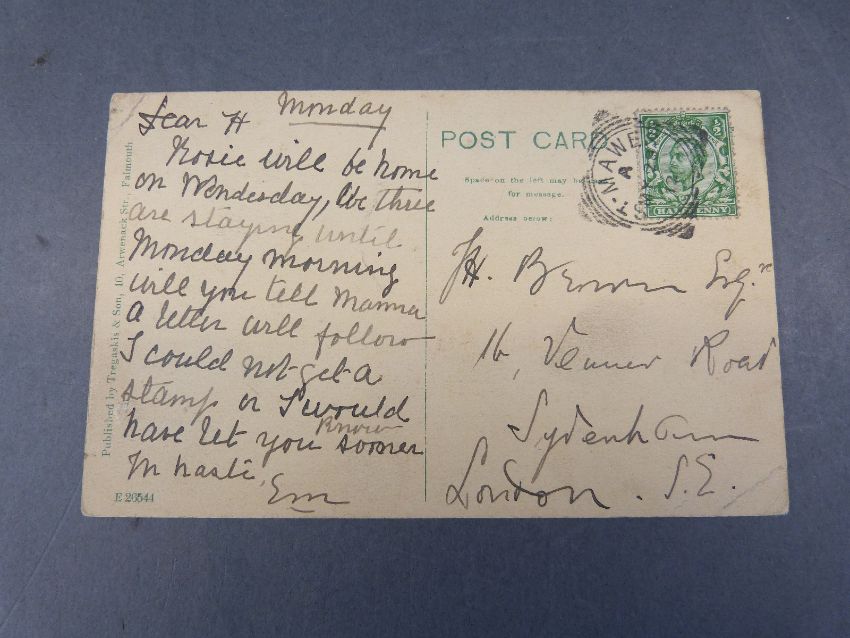 Monday
Dear H
Rosie will be home
on Wendesday, We three
are staying until
Monday morning
will you tell Mamma
a letter will follow
I could not get a
stamp or I would
have let you know sooner
In haste,
Em
Published by Tregaskis & Son, 10, Arwenack Str., Falmouth
E 26544
POST CARD
Space on the left may be
for message.
Address below:
H. Brown Esqr
16, Venner Road
Sydenham
London. S.E.
ST-MAWES
A
HALFPENNY